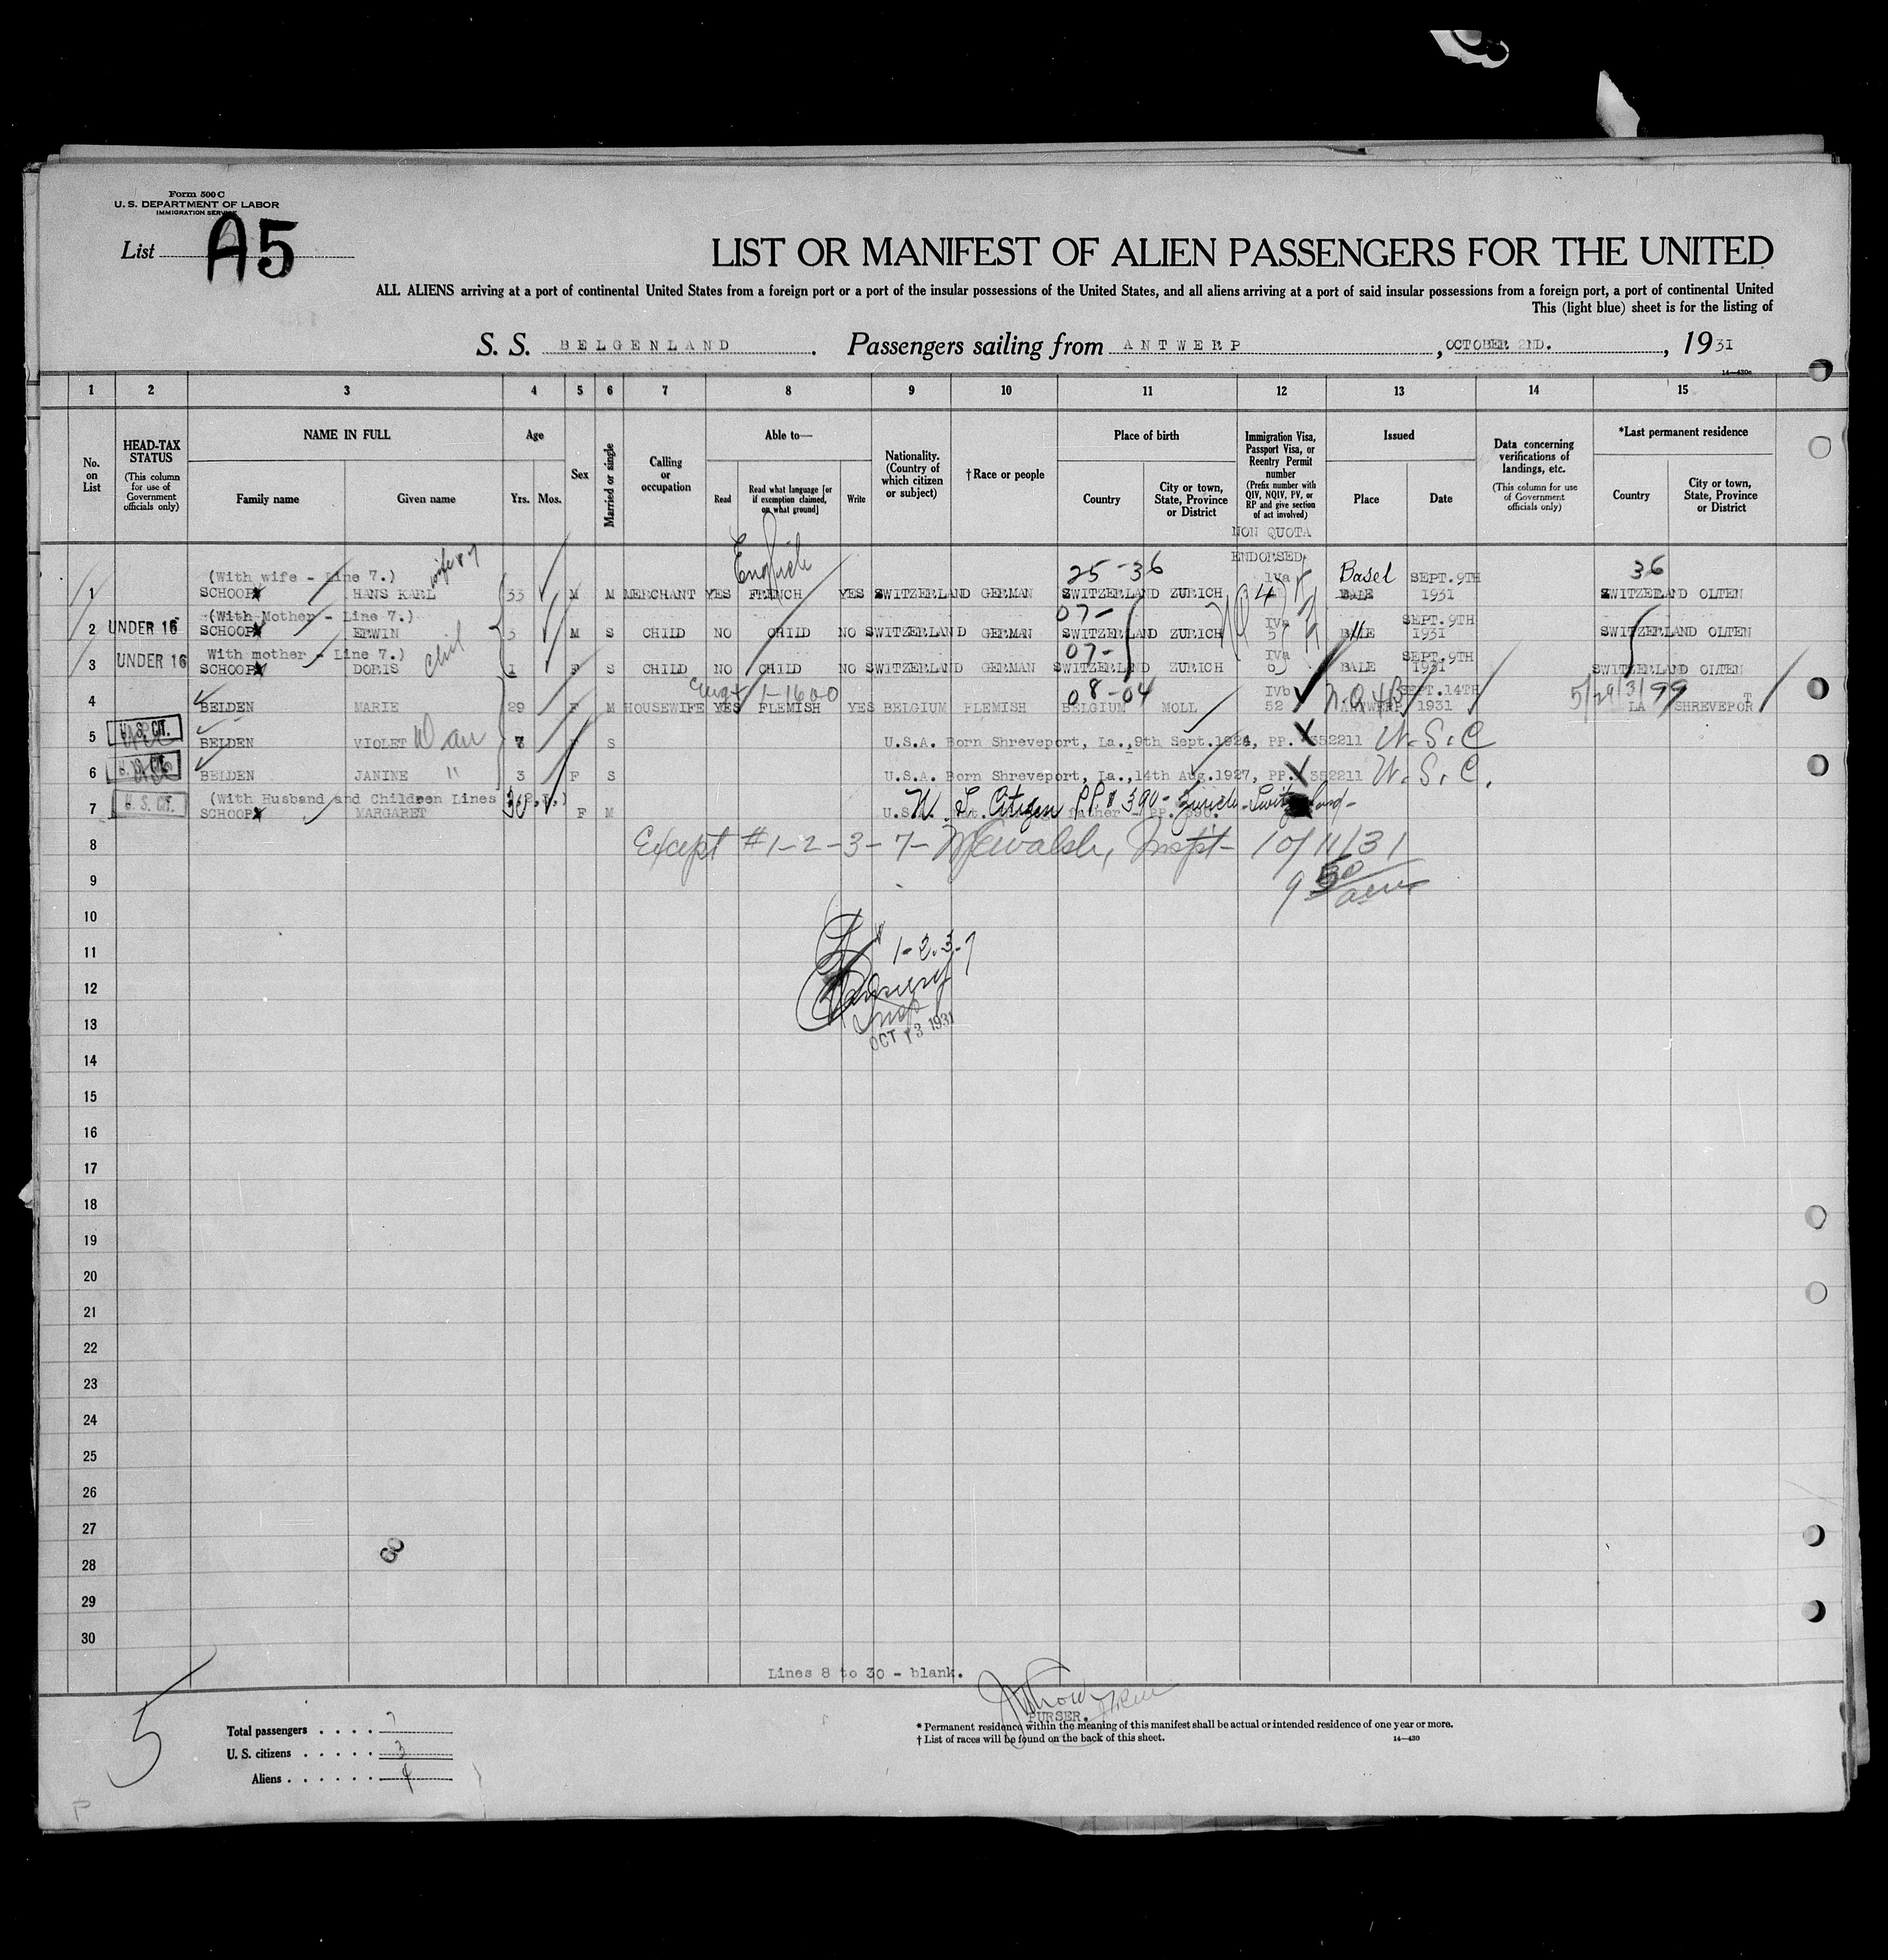 Form 500 C
U. S. DEPARTMENT OF LABOR
IMMIGRATION SERVICE
List A5
LIST OR MANIFEST OF ALIEN PASSENGERS FOR THE UNITED
ALL ALIENS arriving at a port of continental United States from a foreign port or a port of the insular possessions of the United States, and all aliens arriving at a port of said insular possessions from a foreign port, a port of continental United
This (light blue) sheet is for the listing of
S. S. BELGENLAND. Passengers sailing from ANTWERP, OCTOBER 2ND., 1931
14—430c
1 2 3 4 5 6 7 8 9 10 11 12 13 14 15
No. on List
HEAD-TAX STATUS (This column for use of Government officials only)
NAME IN FULL
Family name Given name
Age
Yrs. Mos.
Sex
Married or single
Calling or occupation
Able to—
Read
Read what language [or if exemption claimed, on what ground]
Write
Nationality. (Country of which citizen or subject)
†Race or people
Place of birth
Country
City or town, State, Province or District
Immigration Visa, Passport Visa, or Reentry Permit number (Prefix number with QIV, NQIV, PV, or RP and give section of act involved)
Issued
Place Date
Data concerning verifications of landings, etc. (This column for use of Government officials only)
*Last permanent residence
Country
City or town, State, Province or District
NON QUOTA
ENDORSED
English 25-36 Basel 36
(With wife - Line 7.) wife 7 IVa SEPT.9TH
1 SCHOOP HANS KARL 33 M M MERCHANT YES FRENCH YES SWITZERLAND GERMAN SWITZERLAND ZURICH 4 BALE 1931 SWITZERLAND OLTEN
(With Mother - Line 7.) 07- IVa SEPT.9TH
2 UNDER 16 SCHOOP ERWIN 3 M S CHILD NO CHILD NO SWITZERLAND GERMAN SWITZERLAND ZURICH 5 BALE 1931 SWITZERLAND OLTEN
With mother - Line 7.) 07- IVa SEPT.9TH
3 UNDER 16 SCHOOP DORIS 1 F S CHILD NO CHILD NO SWITZERLAND GERMAN SWITZERLAND ZURICH 6 BALE 1931 SWITZERLAND OLTEN
1-1600 08-04 IVb N.Q 4B SEPT.14TH 5/29/31 99
4 BELDEN MARIE 29 F M HOUSEWIFE YES FLEMISH YES BELGIUM FLEMISH BELGIUM MOLL 52 ANTWERP 1931 LA SHREVEPORT
5 U. S. CIT. BELDEN VIOLET Dau 7 F S U.S.A. Born Shreveport, La., 9th Sept.1924, PP. 352211 U.S.C
6 U. S. CIT. BELDEN JANINE " 3 F S U.S.A. Born Shreveport, La., 14th Aug.1927, PP. 352211 U.S.C.
(With Husband and Children Lines 1,2,3.)
7 U. S. CIT. SCHOOP MARGARET 30 F M U.S.A. U.S. Citizen PP# 390- Zurich-Switzerland-
8 Except #1-2-3-7- Walsh, Inspt- 10/11/31
9 9 50 am
10
11 1-2-3-7
12
13 Insp OCT 13 1931
14
15
16
17
18
19
20
21
22
23
24
25
26
27
28
29
30
Lines 8 to 30 - blank.
PURSER.
5
Total passengers . . . . 7
U. S. citizens . . . . . 3
Aliens . . . . . . 4
* Permanent residence within the meaning of this manifest shall be actual or intended residence of one year or more.
† List of races will be found on the back of this sheet.
14—430
P